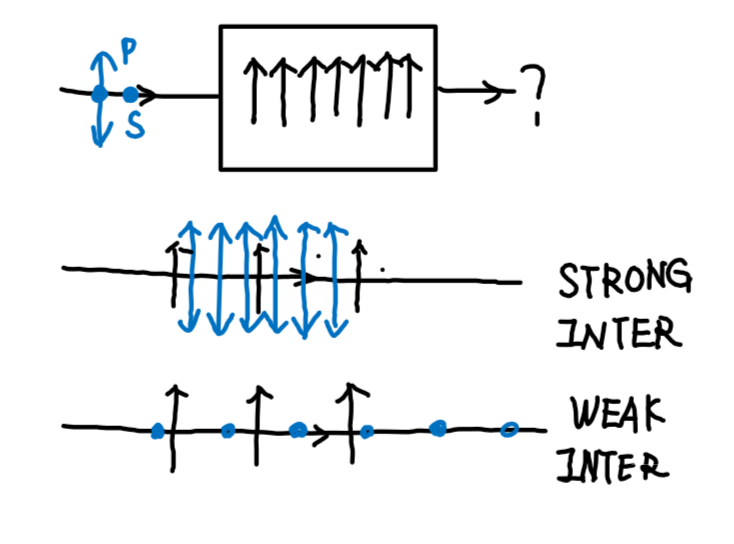 P
S
?
STRONG
INTER
WEAK
INTER